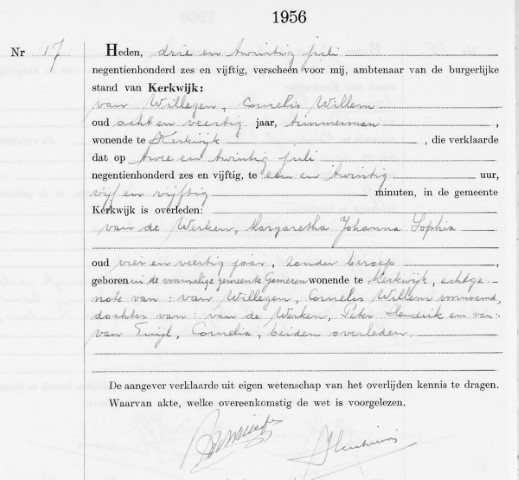 1956
Nr 17
Heden, drie en twintig juli
negentienhonderd zes en vijftig, verscheen voor mij, ambtenaar van de burgerlijke
stand van Kerkwijk:
van Willegen, Cornelis Willem
oud acht en veertig jaar, timmerman
wonende te Kerkwijk, die verklaarde
dat op twee en twintig juli
negentienhonderd zes en vijftig, te een en twintig uur,
vijf en vijftig minuten, in de gemeente
Kerkwijk is overleden:
van de Werken, Margaretha Johanna Sophia
oud vier en veertig jaar, zonder beroep
geboren in de voormalige gemeente Gameren wonende te Kerkwijk, echtge-
note van: van Willegen, Cornelis Willem voornoemd,
dochter van: van de Werken, Peter Hendrik en van:
van Cornelia, beiden overleden.
De aangever verklaarde uit eigen wetenschap van het overlijden kennis te dragen.
Waarvan akte, welke overeenkomstig de wet is voorgelezen.